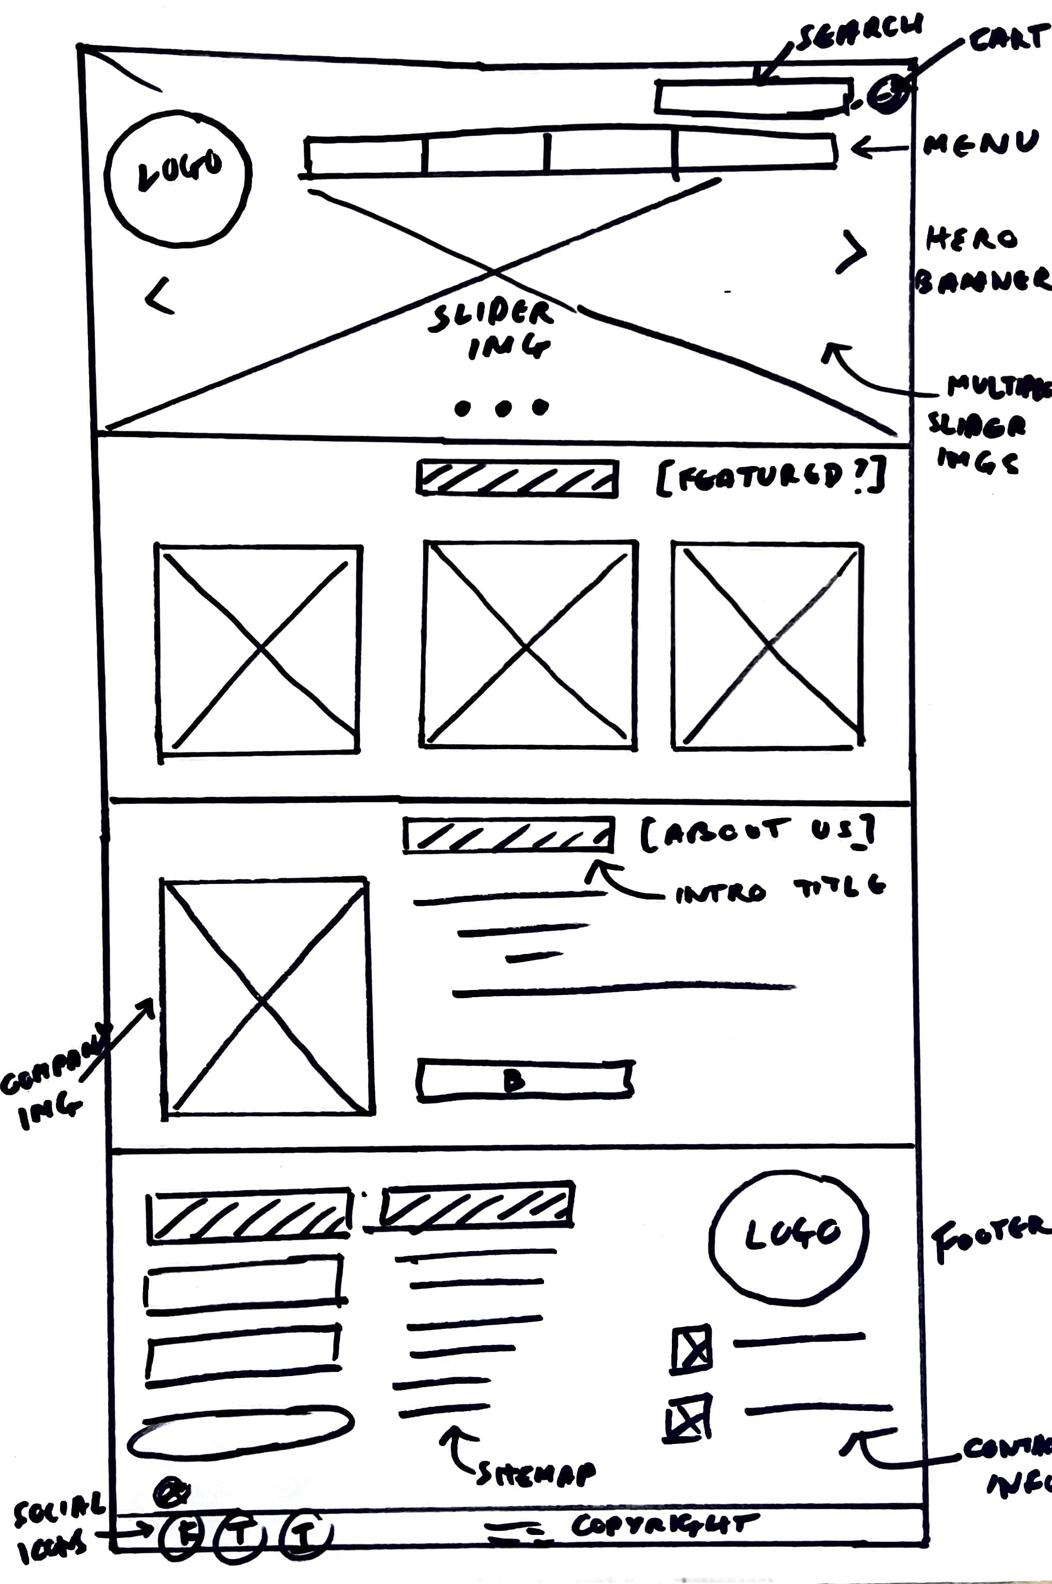 SEARCH
CART
MENU
LOGO
HERO
BANNER
<
>
SLIDER
IMG
SLIDER
IMGS
[FEATURED?]
[ABOUT US]
INTRO TITLE
COMPANY
IMG
B
LOGO
FOOTER
SITEMAP
INFO
SOCIAL
ICONS
F T I
COPYRIGHT